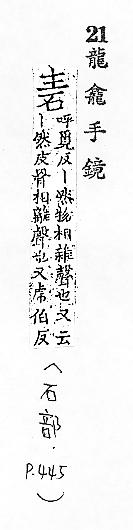 21 龍龕手鏡
砉
呼覓反丨然物相雜聲也又云
丨然皮骨相離聲也又虎伯反
(石部 P.445)